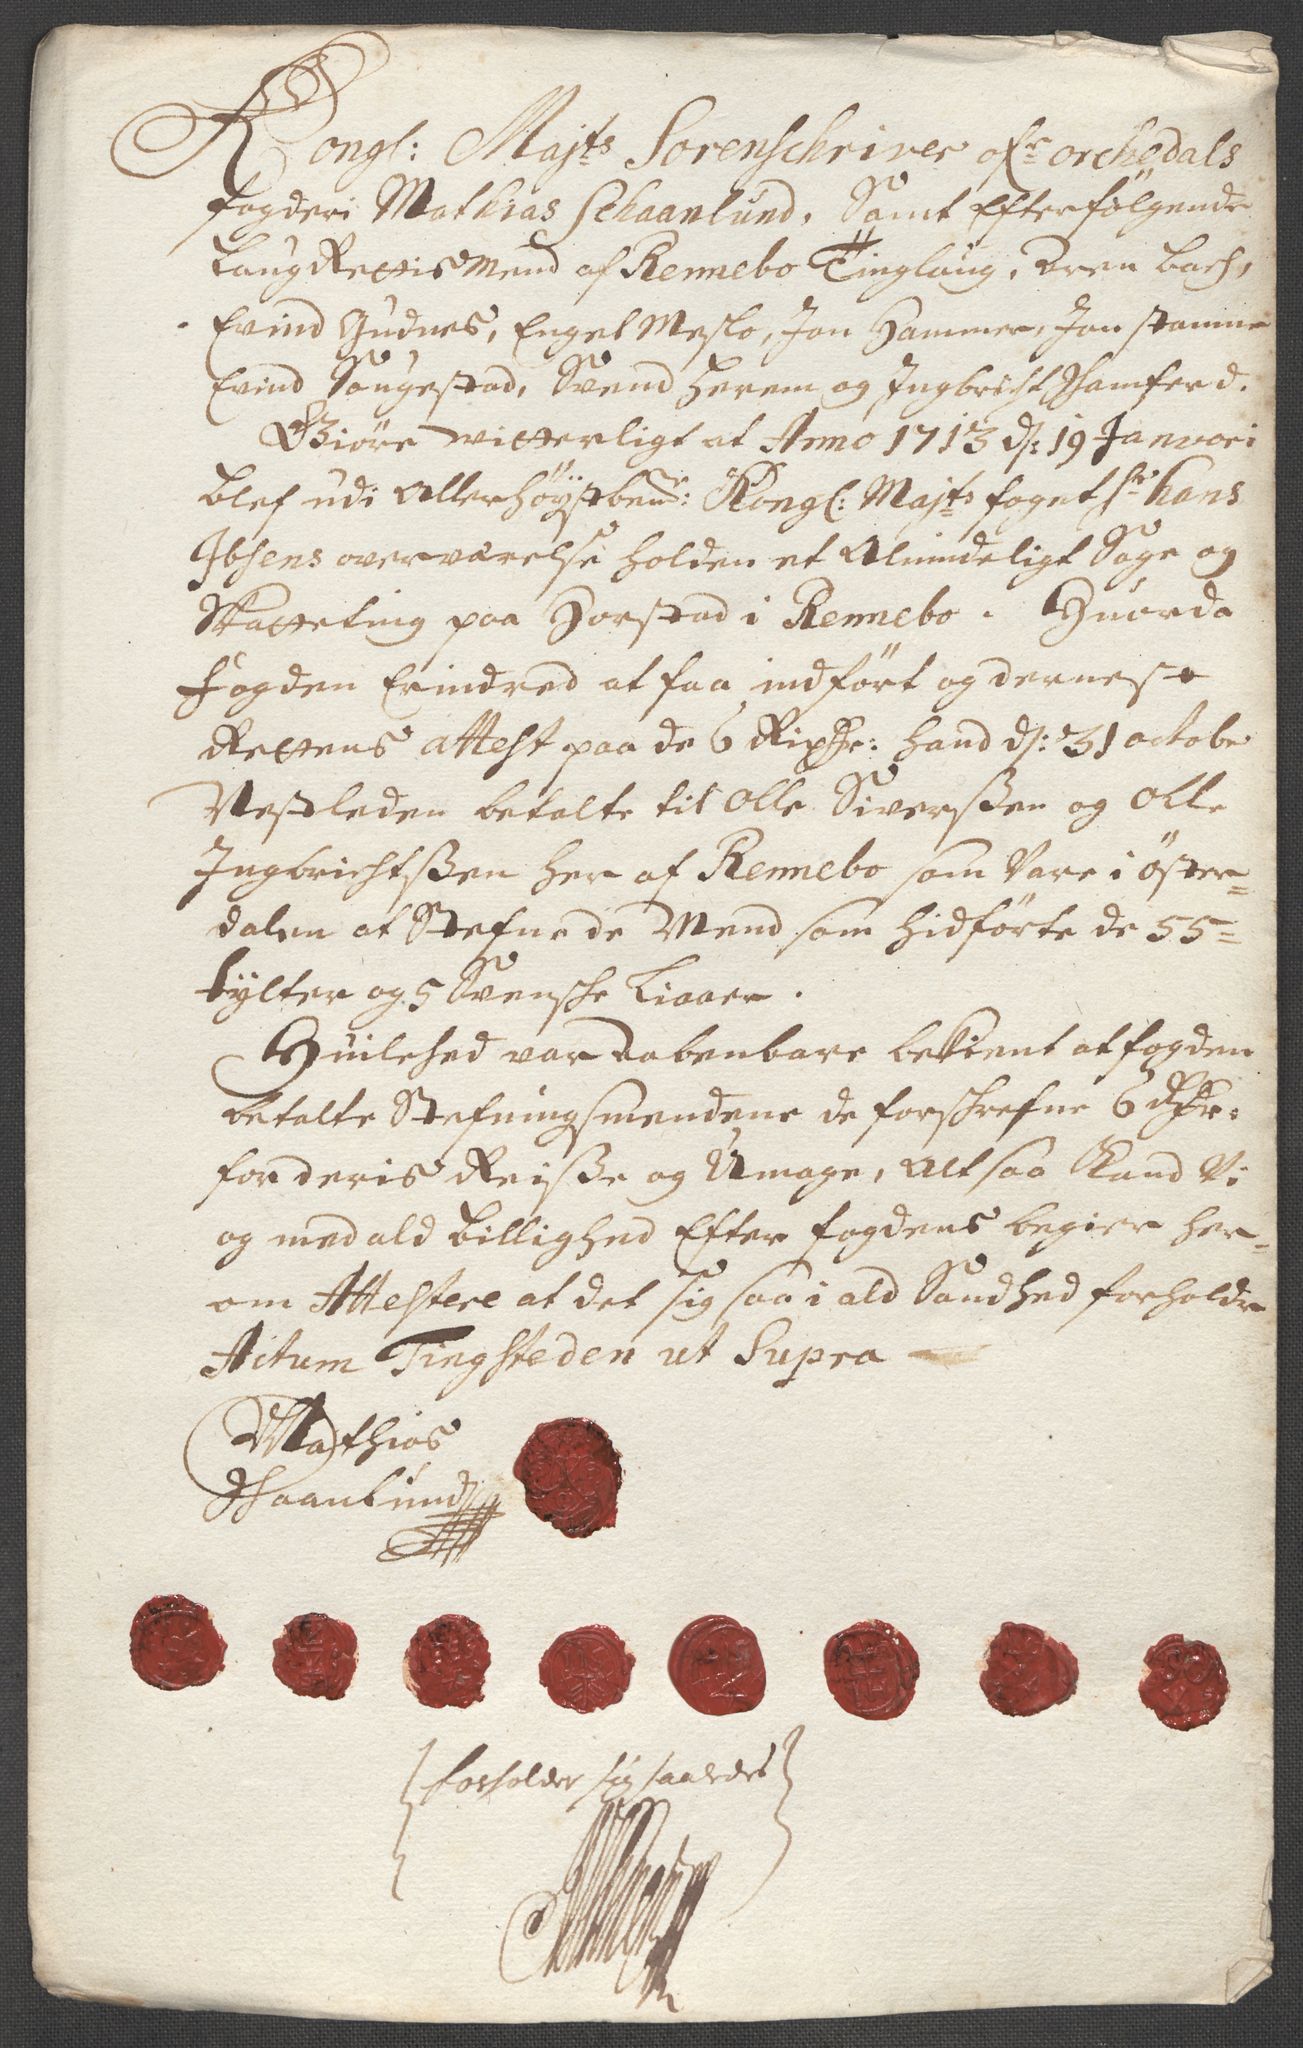 Kongl: Majts Sorenschriver ofr Orchedals
fogderi Mathias Schaanlund, Samt Efterfølgende
LaugRettis Mend af Rennebo Tinglaug, Oren Bach,
Evind Gudnes, Engel Meslo, Jon Hammer, Jon stamne
Evind Haugestad, Svend Herem og Ingbricht Schamferd.
Giöre witterligt at Anno 1713 d: 19 Januari
blef udi Allerhöystbemte: Kongl: Majts foget Sr hans
Ibsens overværelse holden et Almindeligt Sage og
Skatteting paa Horstad i Rennebo. Huorda
Fogden Erindred at faa indfört og dernest
Rettens attest paa de 6 Rixdr: hand d: 31 octobr
Nestleden betalte til Olle Siversßen og Olle
Ingbrichtsßen her af Rennebo som vare i Öster=
dalen at Stefne de Mend som hidförte de 55=
tylter og 5 Svensche Liaaer.
Huilched var aabenbare bekient at fogden
betalte Stefningsmendene de forschrefne 6 Rdr:
for deris Reisße og Umage, Alt saa Kand Vi
og med ald billighed Efter fogdens begier her=
om Attestere at det sig saa i ald Sandhed forholder
Actum Tingsteden ut Supra
Mathias
Schaanlund
forholder sig saaledes